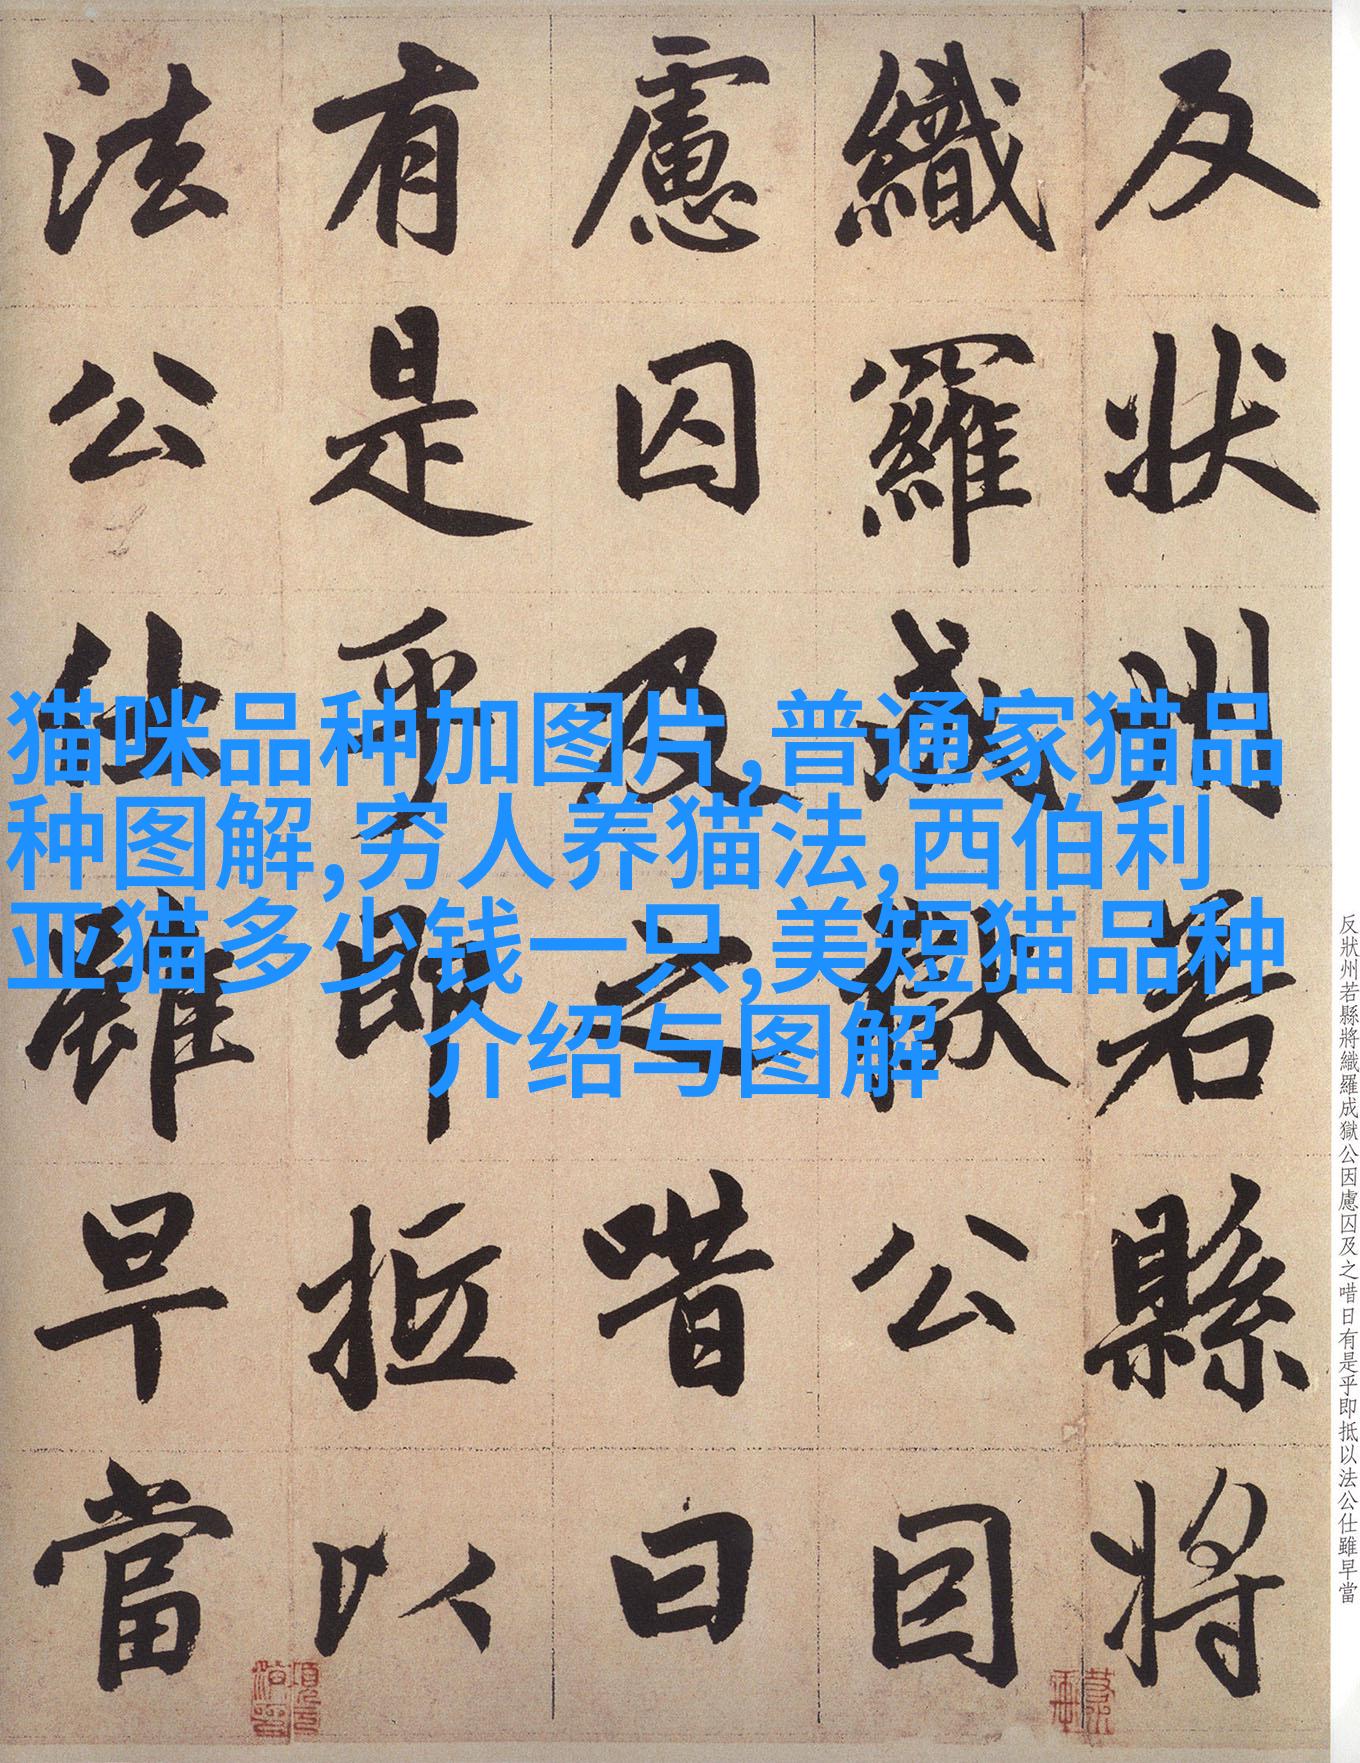 反状州若縣將
織羅成獄公因
慮囚及之唶曰
有是乎即抵以
法公仕雖早當
猫咪品种加图片,普通家猫品
种图解,穷人养猫法,西伯利
亚猫多少钱一只,美短猫品种
介绍与图解
反狀州若縣將織羅成獄公因慮囚及之唶日有是乎即抵以法公仕雖早當